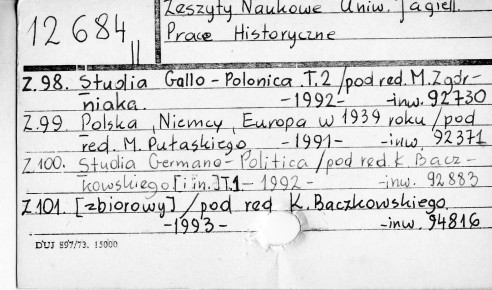 Zeszyty Naukowe Uniw. Jagiell.
12 684 II
Prace Historyczne
Z.98. Studia Gallo-Polonica T.2 /pod red. M. Zgór-
niaka. -1992- -inw. 92730
Z.99. Polska, Niemcy, Europa w 1939 roku /pod
red. M. Pułaskiego -1991- -inw. 92371
Z.100. Studia Germano-Politica /pod red. K. Bacz-
kowskiego [i in.] T.1 -1992- -inw. 92883
Z.101. [zbiorowy] /pod red K. Baczkowskiego.
-1993- -inw. 94816
DUJ 897/73. 15000